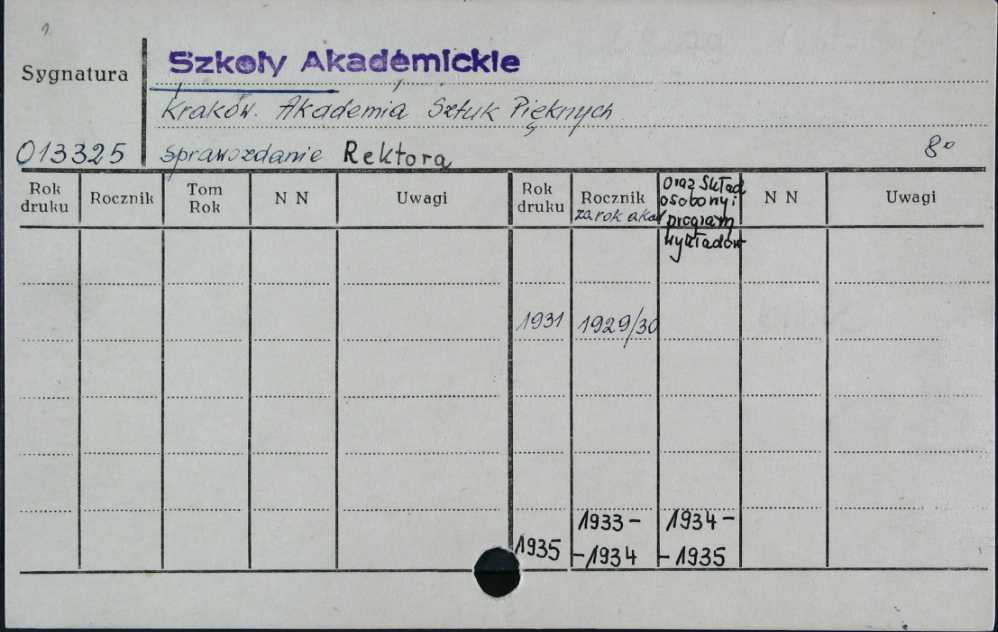 1.
Szkoły Akademickie
Sygnatura
Kraków. Akademia Sztuk Pięknych
013325 Sprawozdanie Rektora 8°
Rok druku Rocznik Tom Rok N N Uwagi Rok druku Rocznik za rok akad oraz skład osobowy i program wykładów N N Uwagi
1931 1929/30
1935 1933- -1934 1934- -1935